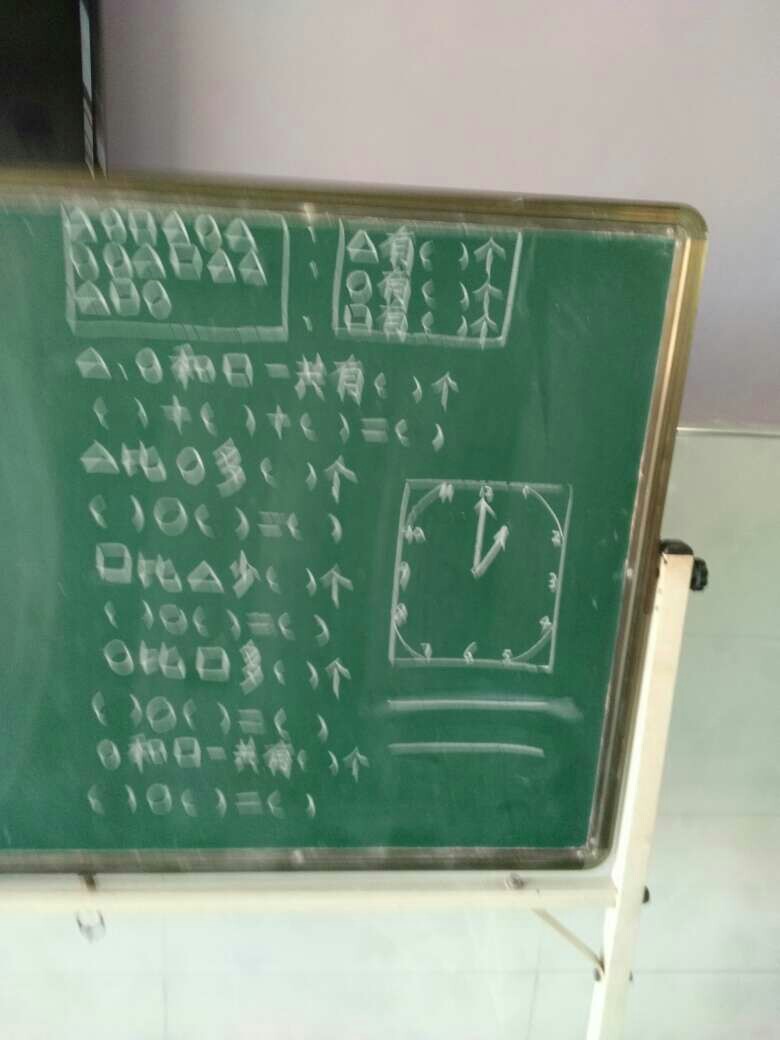 △○□△○△
○○△□△△
△□○
△有( )个
○有( )个
□有( )个
△、○和□一共有( )个
( )+( )+( )=( )
△比○多( )个
( )○( )=( )
□比△少( )个
( )○( )=( )
○比□多( )个
( )○( )=( )
○和□一共有( )个
( )○( )=( )
11 12 1
10 2
9 3
8 4
7 6 5